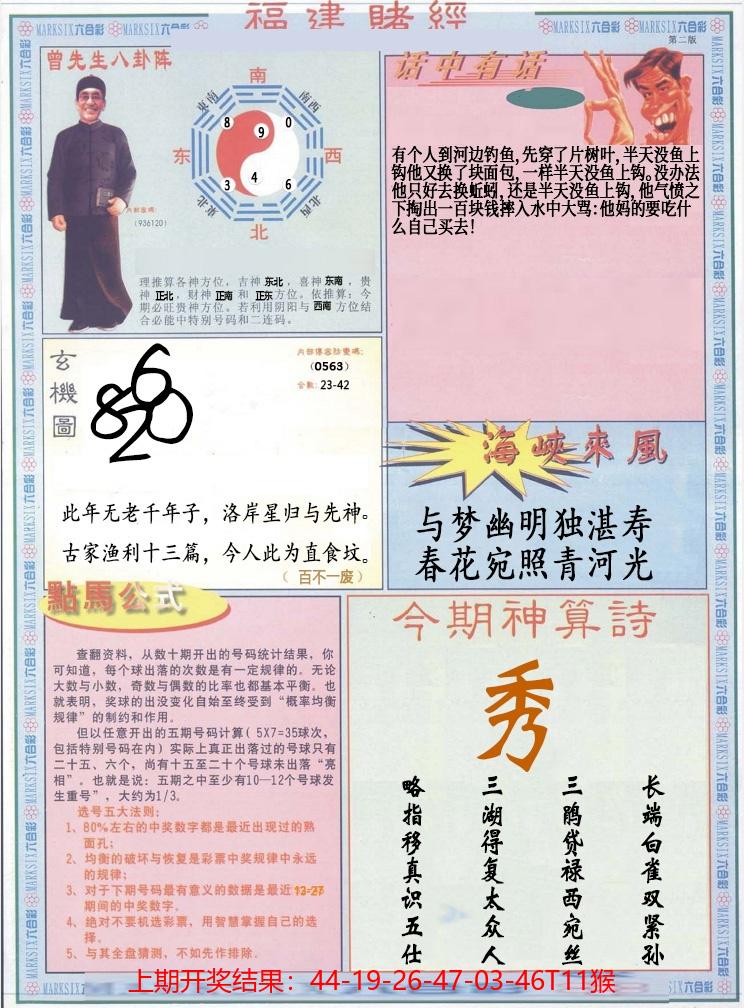 福建賭經
MARKSIX六合彩
第二版
曾先生八卦阵
南
东南
南西
东
西
东北
北西
北
8
9
0
3
4
6
内部密碼:
(936120)
理推算各神方位，吉神东北，喜神东南，贵
神正北，财神正南和正东方位。依推算：今
期必旺贵神方位。若利用阴阳与西南方位结
合必能中特别号码和二连码。
话中有话
有个人到河边钓鱼,先穿了片树叶,半天没鱼上
钩他又换了块面包,一样半天没鱼上钩。没办法
他只好去换蚯蚓,还是半天没鱼上钩,他气愤之
下掏出一百块钱摔入水中大骂:他妈的要吃什
么自己买去!
玄機圖
8 6 2 0
(0563)
合数: 23-42
此年无老千年子，洛岸星归与先神。
古家渔利十三篇，今人此为直食坟。
（ 百不一废）
海峡來風
与梦幽明独湛寿
春花宛照青河光
點馬公式
查翻资料，从数十期开出的号码统计结果，你
可知道，每个球出落的次数是有一定规律的。无论
大数与小数，奇数与偶数的比率也都基本平衡。也
就表明，奖球的出没变化自始至终受到“概率均衡
规律”的制约和作用。
但以任意开出的五期号码计算( 5X7=35球次，
包括特别号码在内) 实际上真正出落过的号球只有
二十五、六个，尚有十五至二十个号球未出落“亮
相”。也就是说：五期之中至少有10—12个号球发
生重号”，大约为1/3。
选号五大法则：
1、80%左右的中奖数字都是最近出现过的熟
面孔；
2、均衡的破坏与恢复是彩票中奖规律中永远
的规律；
3、对于下期号码最有意义的数据是最近13-27
期间的中奖数字。
4、绝对不要机选彩票，用智慧掌握自己的选
择。
5、与其全盘猜测，不如先作排除．
今期神算詩
秀
长端白雀双紧孙
三鹃贷禄西宛丝
三湖得复太众人
略指移真识五仕
上期开奖结果：44-19-26-47-03-46T11猴